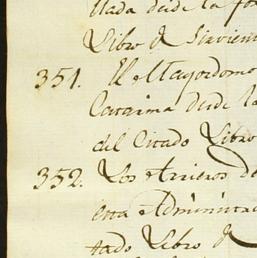 llada desde la fo
Libro de Sirvien
351. El Mayordomo
Cararima desde la
del Citado Libro
352. Los Arrieros de
esta Administra
tado Libro de